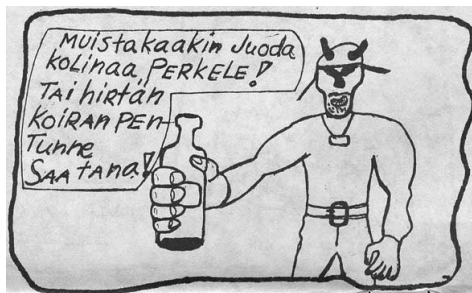 MUiSTAKAAKiN JUODA
KOLiNAA, PERKELE!
TAi HiRTÄN
KOiRAN PEN-
TUNNE
SAATANA!